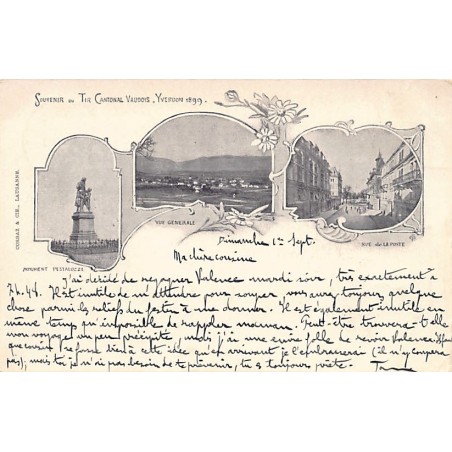 SOUVENIR DU TIR CANTONAL VAUDOIS, YVERDON 1899.
CORBAZ & CIE, LAUSANNE.
VUE GENERALE
MONUMENT PESTALOZZI
RUE de LA POSTE
Dimanche 1er Sept.
Ma chère cousine
J'ai décidé de regagner Valence mardi soir, très exactement à
7h.44. Il est inutile de m'attendre pour souper vous aurez toujours quelque
chose parmi les reliefs du festin à me donner. Il est également inutile en
même temps qu'impossible de rappeler maman. Peut-être trouvera-t-elle
mon voyage un peu précipité, mais j'ai une envie folle de revoir Valence
que cousin se fasse bien à cette idée qu'en arrivant je l'embrasserai (il n'y coupera
pas); mais toi je n'ai pas besoin de te prévenir, tu es toujours prête.